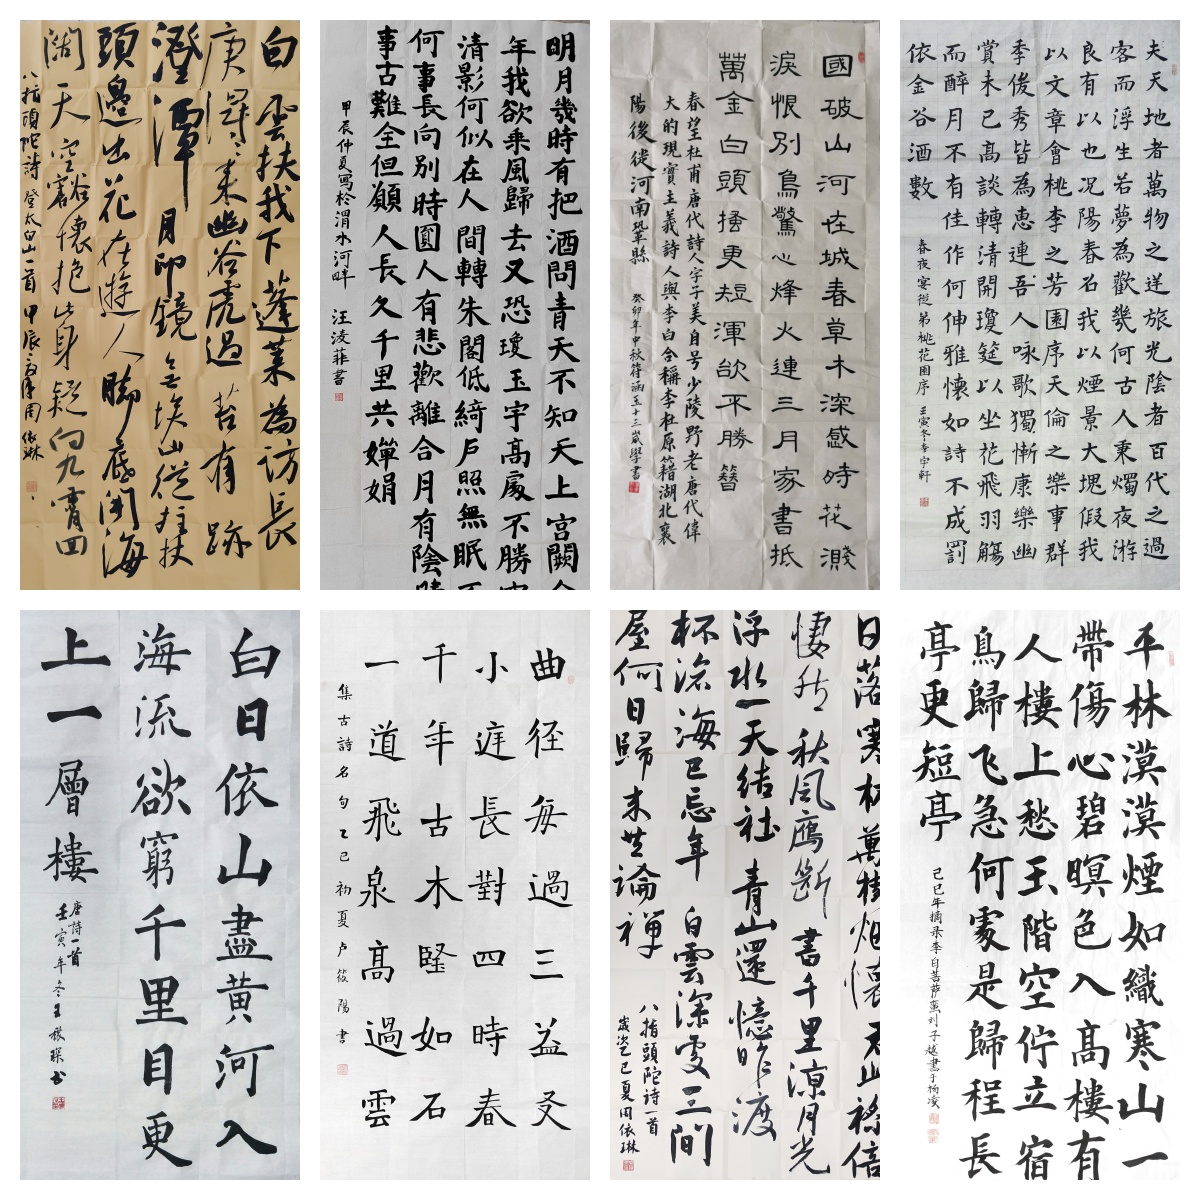 白雲扶我下蓬萊為訪長
庚得得來幽谷虎過苔有跡
澄潭月印鏡無埃山從拄杖
頭邊出花在遊人腳底開海
闊天空豁懷抱此身疑向九霄回
八指頭陀詩登太白山一首甲辰
周依琳
明月幾時有把酒問青天不知天上宮闕
年我欲乘風歸去又恐瓊玉宇高處不勝
清影何似在人間轉朱閣低綺戶照無眠
何事長向別時圓人有悲歡離合月有陰晴
事古難全但願人長久千里共嬋娟
甲辰仲夏寫於渭水河畔 汪淩菲書
國破山河在城春草木深感時花濺
淚恨別鳥驚心烽火連三月家書抵
萬金白頭搔更短渾欲不勝簪
春望杜甫唐代詩人字子美自号少陵野老唐代偉
大的現實主義詩人與李白合稱李杜原籍湖北襄
陽後徙河南鞏縣 癸卯年中秋符涵玉十三歲學書
夫天地者萬物之逆旅光陰者百代之過
客而浮生若夢為歡幾何古人秉燭夜游
良有以也况陽春名我以煙景大塊假我
以文章會桃李之芳園序天倫之樂事群
季俊秀皆為惠連吾人咏歌獨慚康樂幽
賞未已高談轉清開瓊筵以坐花飛羽觴
而醉月不有佳作何伸雅懷如詩不成罰
依金谷酒數 春夜宴從弟桃花園序 壬寅冬李宇軒
白日依山盡黃河入
海流欲窮千里目更
上一層樓
唐詩一首
壬寅年冬王
書
曲径每過三益友
小庭長對四時春
千年古木堅如石
一道飛泉高過雲
集古詩名句乙巳初夏卢筱陽書
日落寒林萬樹烟懷君山祿倍
悽然秋風鴈斷書千里凉月光
浮水一天結社青山還憶昨渡
杯滄海已忘年白雲深處三間
屋何日歸來共論禪
八指頭陀詩一首
歲次乙巳夏周依琳
平林漠漠煙如織寒山一
帶傷心碧暝色入高樓有
人樓上愁玉階空佇立宿
鳥歸飞急何處是歸程長
亭更短亭
己巳年摘录李白菩萨蛮刘子越書于杨凌